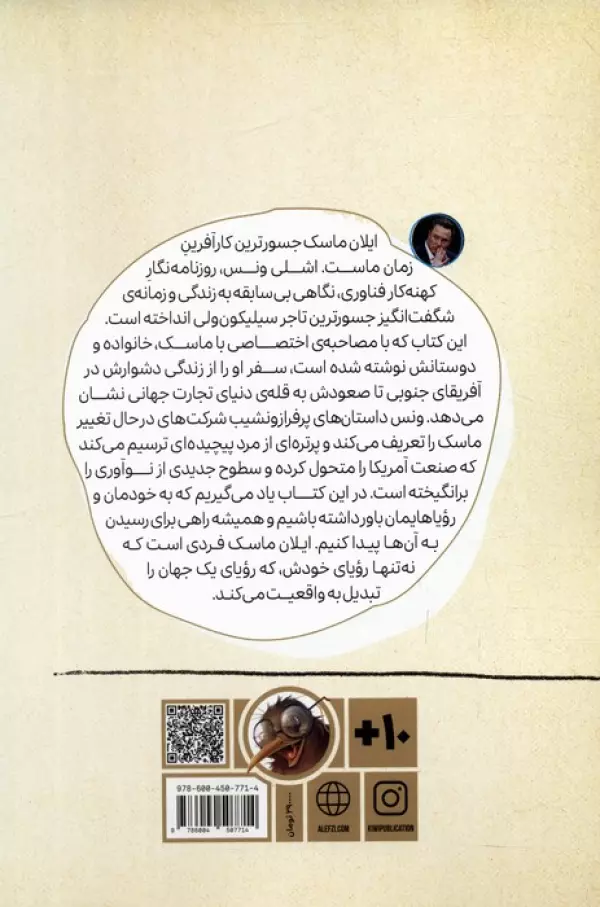 ایلان ماسک جسورترین کارآفرینِ
زمان ماست. اشلی ونس، روزنامه‌نگارِ
کهنه‌کار فناوری، نگاهی بی‌سابقه به زندگی و زمانه‌ی
شگفت‌انگیز جسورترین تاجر سیلیکون‌ولی انداخته است.
این کتاب که با مصاحبه‌ی اختصاصی با ماسک، خانواده و
دوستانش نوشته شده است، سفر او را از زندگی دشوارش در
آفریقای جنوبی تا صعودش به قله‌ی دنیای تجارت جهانی نشان
می‌دهد. ونس داستان‌های پرفرازونشیب شرکت‌های درحال تغییر
ماسک را تعریف می‌کند و پرتره‌ای از مرد پیچیده‌ای ترسیم می‌کند
که صنعت آمریکا را متحول کرده و سطوح جدیدی از نوآوری را
برانگیخته است. در این کتاب یاد می‌گیریم که به خودمان و
رؤیاهایمان باور داشته باشیم و همیشه راهی برای رسیدن
به آن‌ها پیدا کنیم. ایلان ماسک فردی است که
نه‌تنها رؤیای خودش، که رؤیای یک جهان را
تبدیل به واقعیت می‌کند.
+۱۰
978-600-450-771-4
9 786004 507714
تومان
ALEFZI.COM
KIWIPUBLICATION